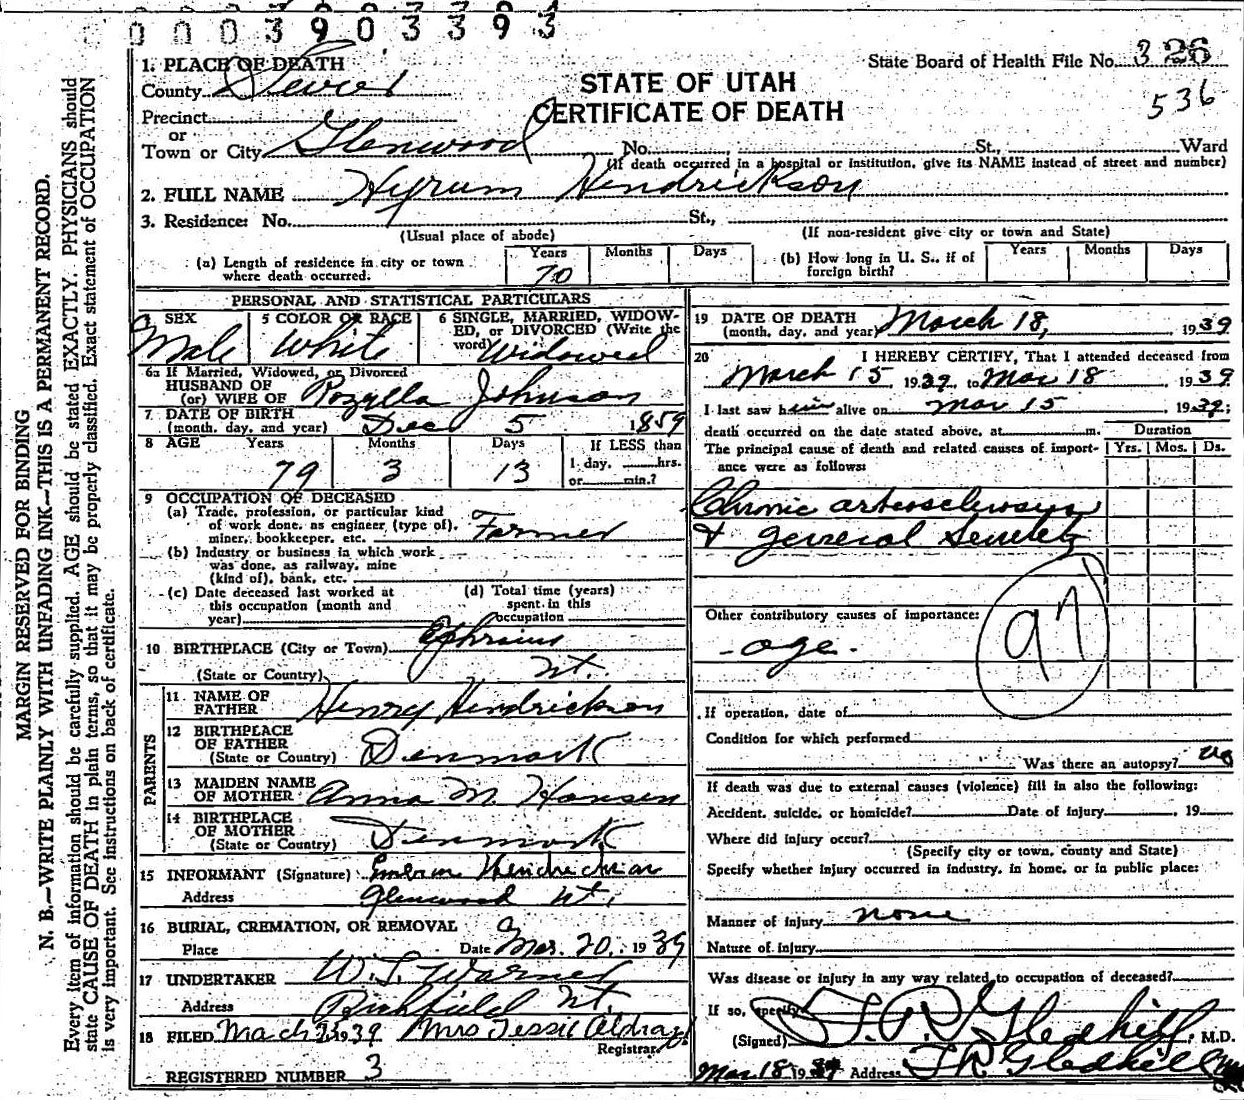 0003903393
1. PLACE OF DEATH
State Board of Health File No. 326
County Sevier
STATE OF UTAH
536
CERTIFICATE OF DEATH
Precinct
or
Town or City Glenwood No. St., Ward
(If death occurred in a hospital or institution, give its NAME instead of street and number)
2. FULL NAME Hyrum Hendrickson
3. Residence: No. St.,
(Usual place of abode) (If non-resident give city or town and State)
(a) Length of residence in city or town where death occurred. Years 70 Months Days
(b) How long in U. S., if of foreign birth? Years Months Days
PERSONAL AND STATISTICAL PARTICULARS
SEX Male
5 COLOR OR RACE White
6 SINGLE, MARRIED, WIDOWED, or DIVORCED (Write the word) Widowed
6a If Married, Widowed, or Divorced
HUSBAND OF
(or) WIFE OF Rozilla Johnson
7 DATE OF BIRTH
(month, day, and year) Dec 5 1859
8 AGE Years 79 Months 3 Days 13 If LESS than
1 day, hrs.
or min.?
9 OCCUPATION OF DECEASED
(a) Trade, profession, or particular kind
of work done, as engineer, (type of),
miner, bookkeeper, etc. Farmer
(b) Industry or business in which work
was done, as railway, mine
(kind of), bank, etc.
(c) Date deceased last worked at
this occupation (month and
year)
(d) Total time (years)
spent in this
occupation
10 BIRTHPLACE (City or Town) Ephraim
(State or Country) Ut.
PARENTS
11 NAME OF
FATHER Henry Hendrickson
12 BIRTHPLACE
OF FATHER
(State or Country) Denmark
13 MAIDEN NAME
OF MOTHER Anna M. Hansen
14 BIRTHPLACE
OF MOTHER
(State or Country) Denmark
15 INFORMANT (Signature) Hendrickson
Address Glenwood Ut.
16 BURIAL, CREMATION, OR REMOVAL
Place Date Mar. 20, 1939
17 UNDERTAKER W. S. Warner
Address Richfield Ut.
18 FILED March 1939 Mrs Tessie
Registrar
REGISTERED NUMBER 3
19 DATE OF DEATH
(month, day, and year) March 18, 1939
20 I HEREBY CERTIFY, That I attended deceased from
March 15, 1939, to Mar 18, 1939
I last saw him alive on Mar 15, 1939;
death occurred on the date stated above, at m.
Duration
Yrs. Mos. Ds.
The principal cause of death and related causes of importance were as follows:
Chronic
& general
Other contributory causes of importance:
age.
97
If operation, date of
Condition for which performed
Was there an autopsy? no
If death was due to external causes (violence) fill in also the following:
Accident, suicide, or homicide? Date of injury, 19
Where did injury occur?
(Specify city or town, county and State)
Specify whether injury occurred in industry, in home, or in public place:
Manner of injury none
Nature of injury
Was disease or injury in any way related to occupation of deceased?
If so, specify
(Signed) T. R. Gledhill, M.D.
Mar 18 1939 Address T R Gledhill
MARGIN RESERVED FOR BINDING
N. B.—WRITE PLAINLY WITH UNFADING INK—THIS IS A PERMANENT RECORD.
Every item of information should be carefully supplied. AGE should be stated EXACTLY. PHYSICIANS should
state CAUSE OF DEATH in plain terms, so that it may be properly classified. Exact statement of OCCUPATION
is very important. See instructions on back of certificate.